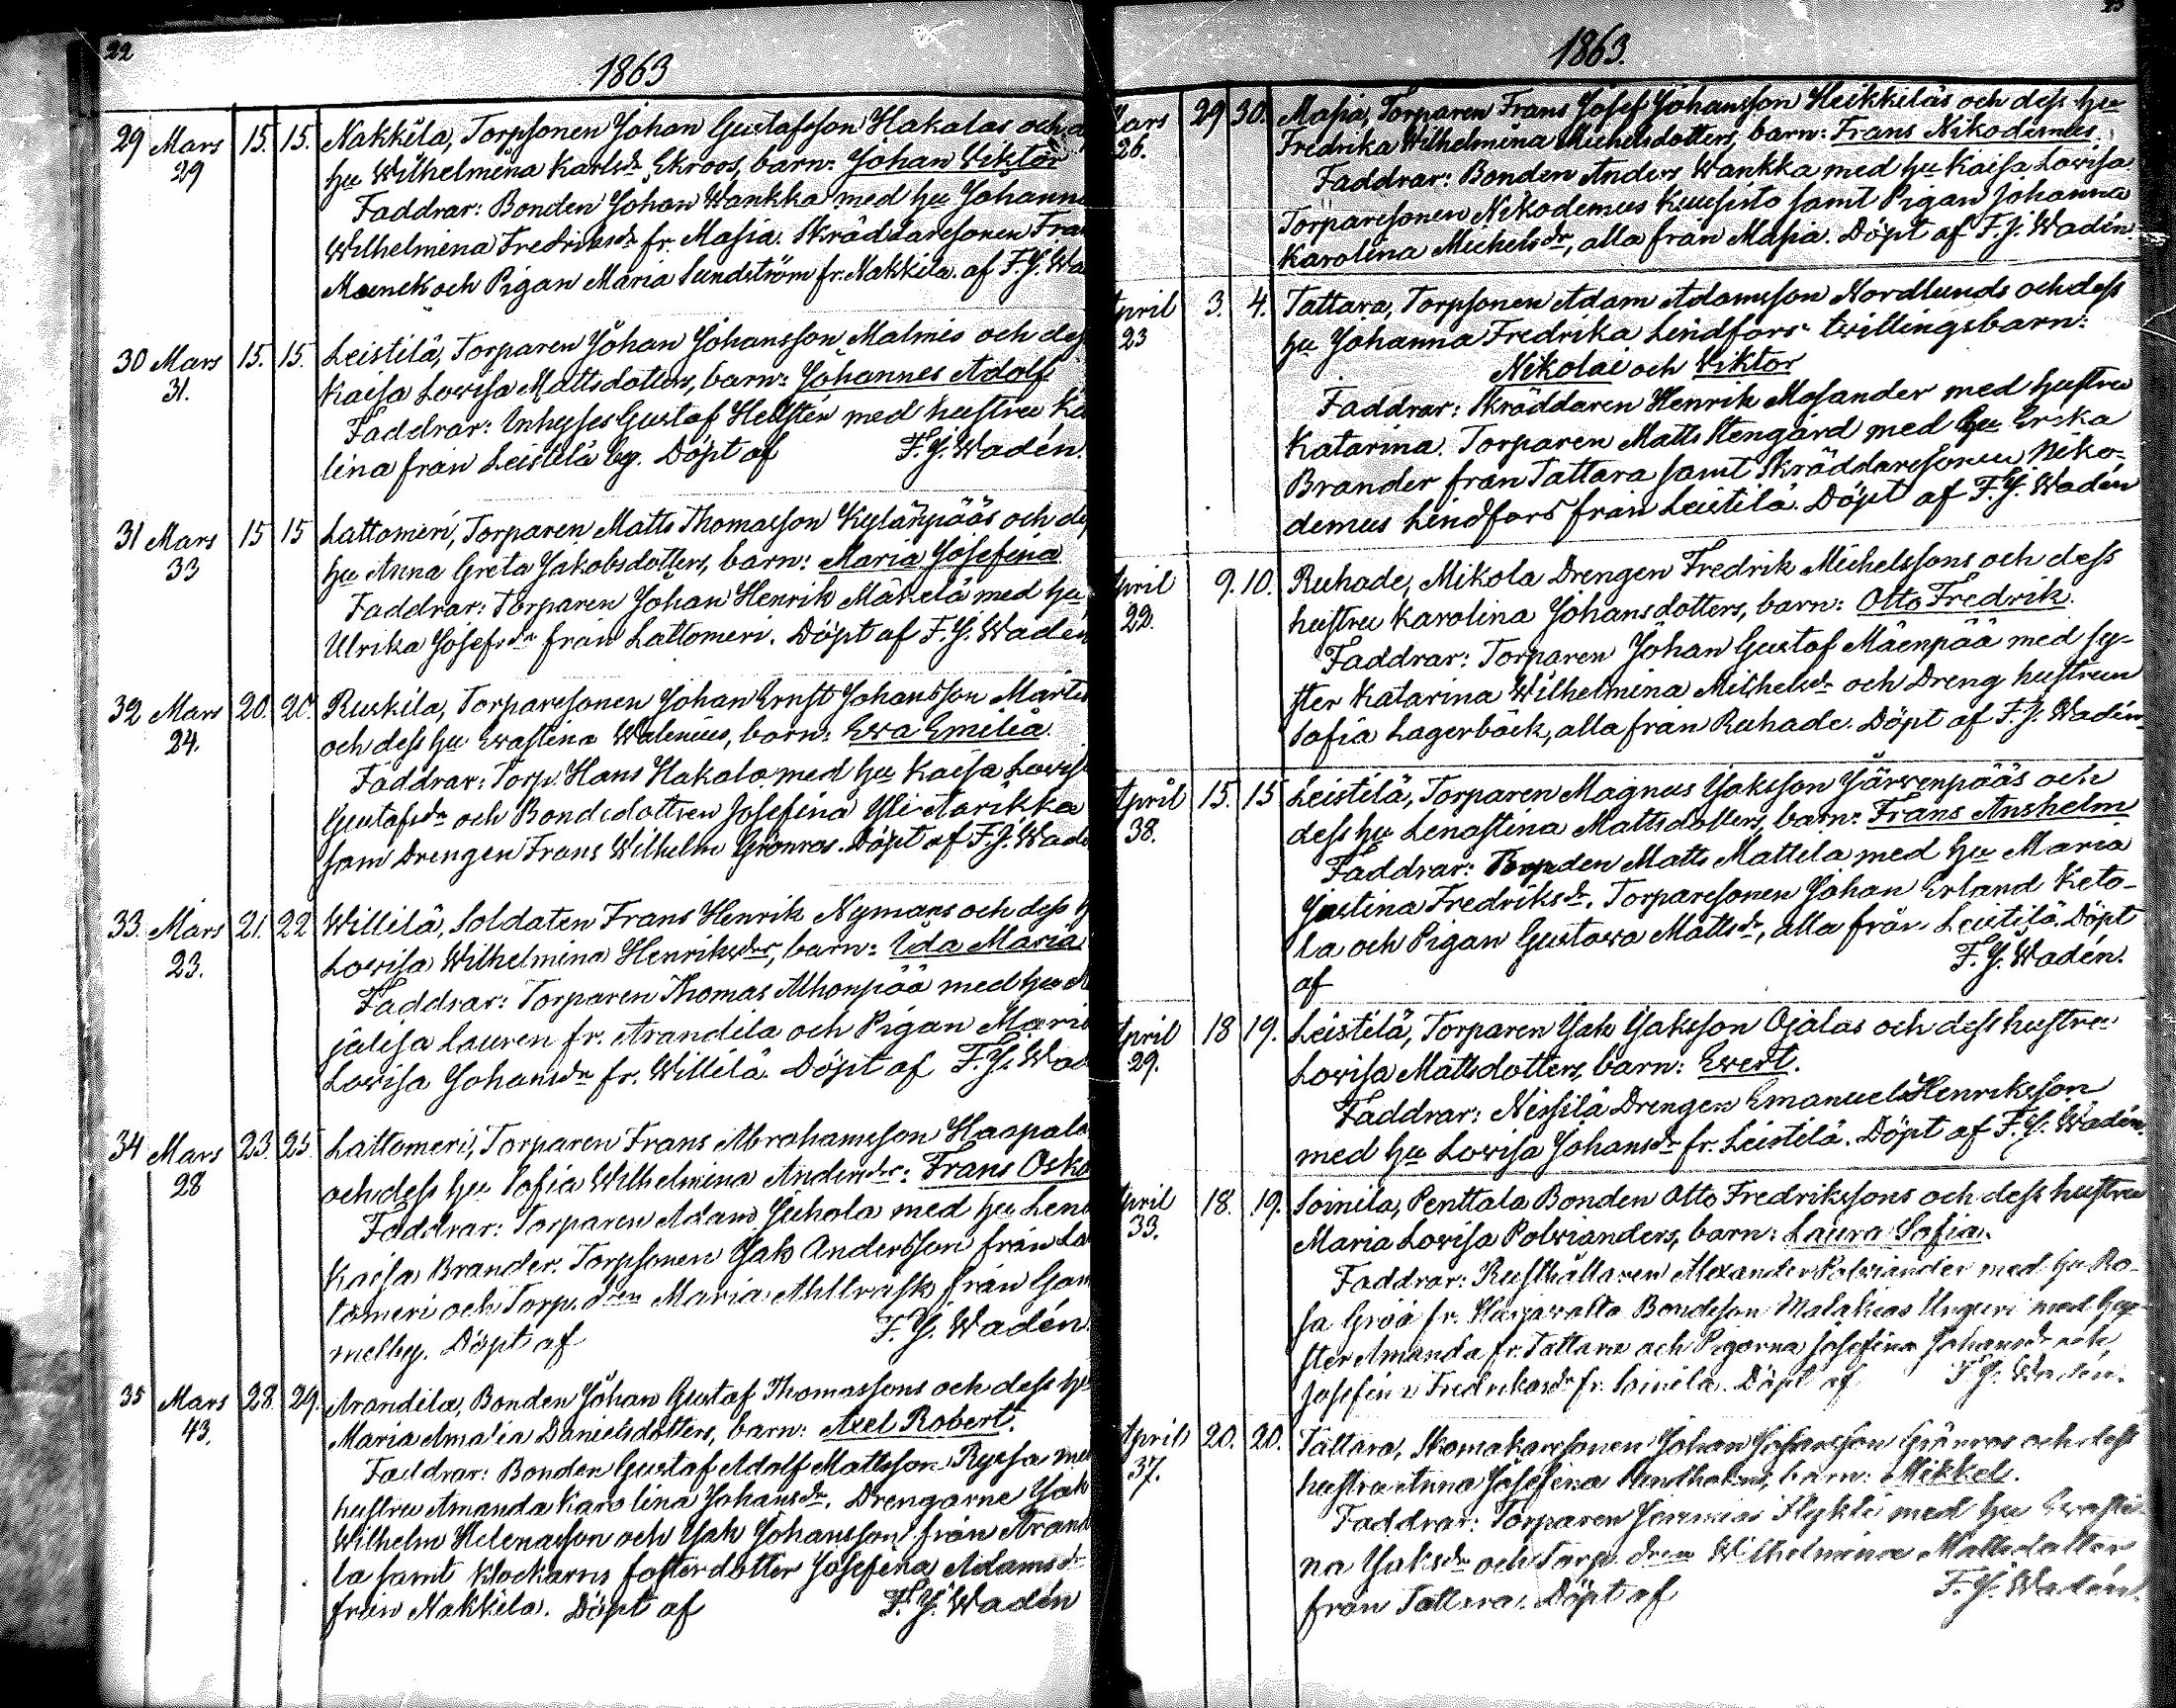 22
1863
29 Mars 15. 15. Nakkila, Torpsonen Johan Gustafsson Hakalas och
29 hu Wilhelmina Karlsdr Ekroos, barn: Johan Wiktor
Faddrar: Bonden Johan Wankka med hu Johann
Wilhelmina Fredriksdr fr. Masia. Skräddaresonen Fra
Munck och Pigan Maria Sundström fr. Nakkila. af F. J. Wa
30 Mars 15. 15. Leistilä, Torparen Johan Johansson Malmis och des
31. Kaisa Lovisa Mattsdotters, barn: Johannes Adolf
Faddrar: Inhyses Gustaf Hellstén med hustru Ka
lina från Leistilä by. Döpt af F. J. Wadén.
31 Mars 15 15 Lattomeri, Torparen Matts Thomasson Kylänpääs och de
33 hu Anna Greta Jakobsdotters, barn: Maria Josefina
Faddrar: Torparen Johan Henrik Mäkelä med hu
Ulrika Josefsdr från Lattomeri. Döpt af F. J. Wadén
32 Mars 20. 20. Ruskila, Torparesonen Johan Ernst Johansson Marti
24. och dess hu Evastina Walenius, barn: Ewa Emilia.
Faddrar: Torp. Hans Hakala med hu Kaisa Lovis
Gustafsdr och Bondedottren Josefina Yli-Aarikka
sam Drengen Frans Wilhelm Grönroos. Döpt af F. J. Wadé
33. Mars 21. 22 Willilä, Soldaten Frans Henrik Nymans och dess h
23. Lovisa Wilhelmina Henriksdrs, barn: Ida Maria
Faddrar: Torparen Thomas Alhonpää med hu
jälisa Lauren fr. Arandila och Pigan Mari
Lovisa Johansdr fr. Willilä. Döpt af F. J. Wad
34 Mars 23. 25. Lattomeri, Torparen Frans Abrahamsson Haapala
28 och dess hu Sofia Wilhelmina Andersdrs: Frans Oska
Faddrar: Torparen Adam Juhola med hu Lena
Kaisa Brander. Torpsonen Jak Andersson från La
tomeri och Torp. dren Maria Ahlfrask från Gam
melby. Döpt af F. J. Wadén.
35 Mars 28. 29. Arandila, Bonden Johan Gustaf Thomassons och dess hu
43. Maria Amalia Danielsdotters, barn: Axel Robert.
Faddrar: Bonden Gustaf Adolf Mattsson Ryssa me
hustru Amanda Karolina Johansdr. Drengarne Jak
Wilhelm Helenasson och Jak Johansson från Arand
la samt Klockarns fosterdotter Josefina Adamsdr
från Nakkila. Döpt af F. J. Wadén
1863.
Mars 29 30. Masia, Torparen Frans Josef Johansson Heikkiläs och dess hu
26. Fredrika Wilhelmina Michelsdotters, barn: Frans Nikodemus.
Faddrar: Bonden Anders Wankka med hu Kaisa Lovisa.
Torparesonen Nikodemus Kuusisto samt Pigan Johanna
Karolina Michelsdr, alla från Masia. Döpt af F. J. Wadén.
April 3. 4. Tattara, Torpsonen Adam Adamsson Nordlunds och dess
23 hu Johanna Fredrika Lindfors tvillingsbarn:
Nikolai och Viktor
Faddrar: Skräddaren Henrik Mosander med hustru
Katarina. Torparen Matts Stengård med hu Erika
Brander från Tattara samt Skräddaresonen Niko-
demus Lindfors från Leistilä. Döpt af F. J. Wadén
April 9. 10. Ruhade, Mikola Drengen Fredrik Michelssons och dess
22. hustru Karolina Johansdotters, barn: Otto Fredrik.
Faddrar: Torparen Johan Gustaf Mäenpää med sy-
ster Katarina Wilhelmina Michelsdr och Dreng hustrun
Sofia Lagerbäck, alla från Ruhade. Döpt af F. J. Wadén
April 15. 15 Leistilä, Torparen Magnus Jaksson Järvenpääs och
38. dess hu Lenastina Mattsdotters, barn: Frans Anshelm
Faddrar: Matts Mattila med hu Maria
Justina Fredriksdr. Torparesonen Johan Erland Keto-
la och Pigan Gustava Mattsdr, alla från Leistilä. Döpt
af F. J. Wadén.
April 18 19. Leistilä, Torparen Jak Jaksson Ojalas och dess hustru
29. Lovisa Mattsdotters, barn: Evert.
Faddrar: Nissilä Drengen Emanuel Henriksson
med hu Lovisa Johansdr fr. Leistilä. Döpt af F. J. Wadén.
April 18. 19. Soinila, Penttala Bonden Otto Fredrikssons och dess hustru
33. Maria Lovisa Polvianders, barn: Laura Sofia.
Faddrar: Rusthållaren Alexander Polviander med hu Ro-
sa Gröá fr. Harjavalta Bondeson Malakias Unguri med hy-
ster Amanda fr. Tattara och Pigorna Josefina Johansdr och
Josefina Fredriksdr fr. Soinila. Döpt af F. J. Wadén.
April 20. 20. Tattara, Skomakaresonen Johan Johansson Grönroos och dess
37. hustru Anna Josefina Sundholms, barn: Mikkel.
Faddrar: Torparen Jeremias Flykti med hu Evasti-
na Jaksdr och Torp. dren Wilhelmina Mattsdotter
från Tattara. Döpt af F. J. Wadén.